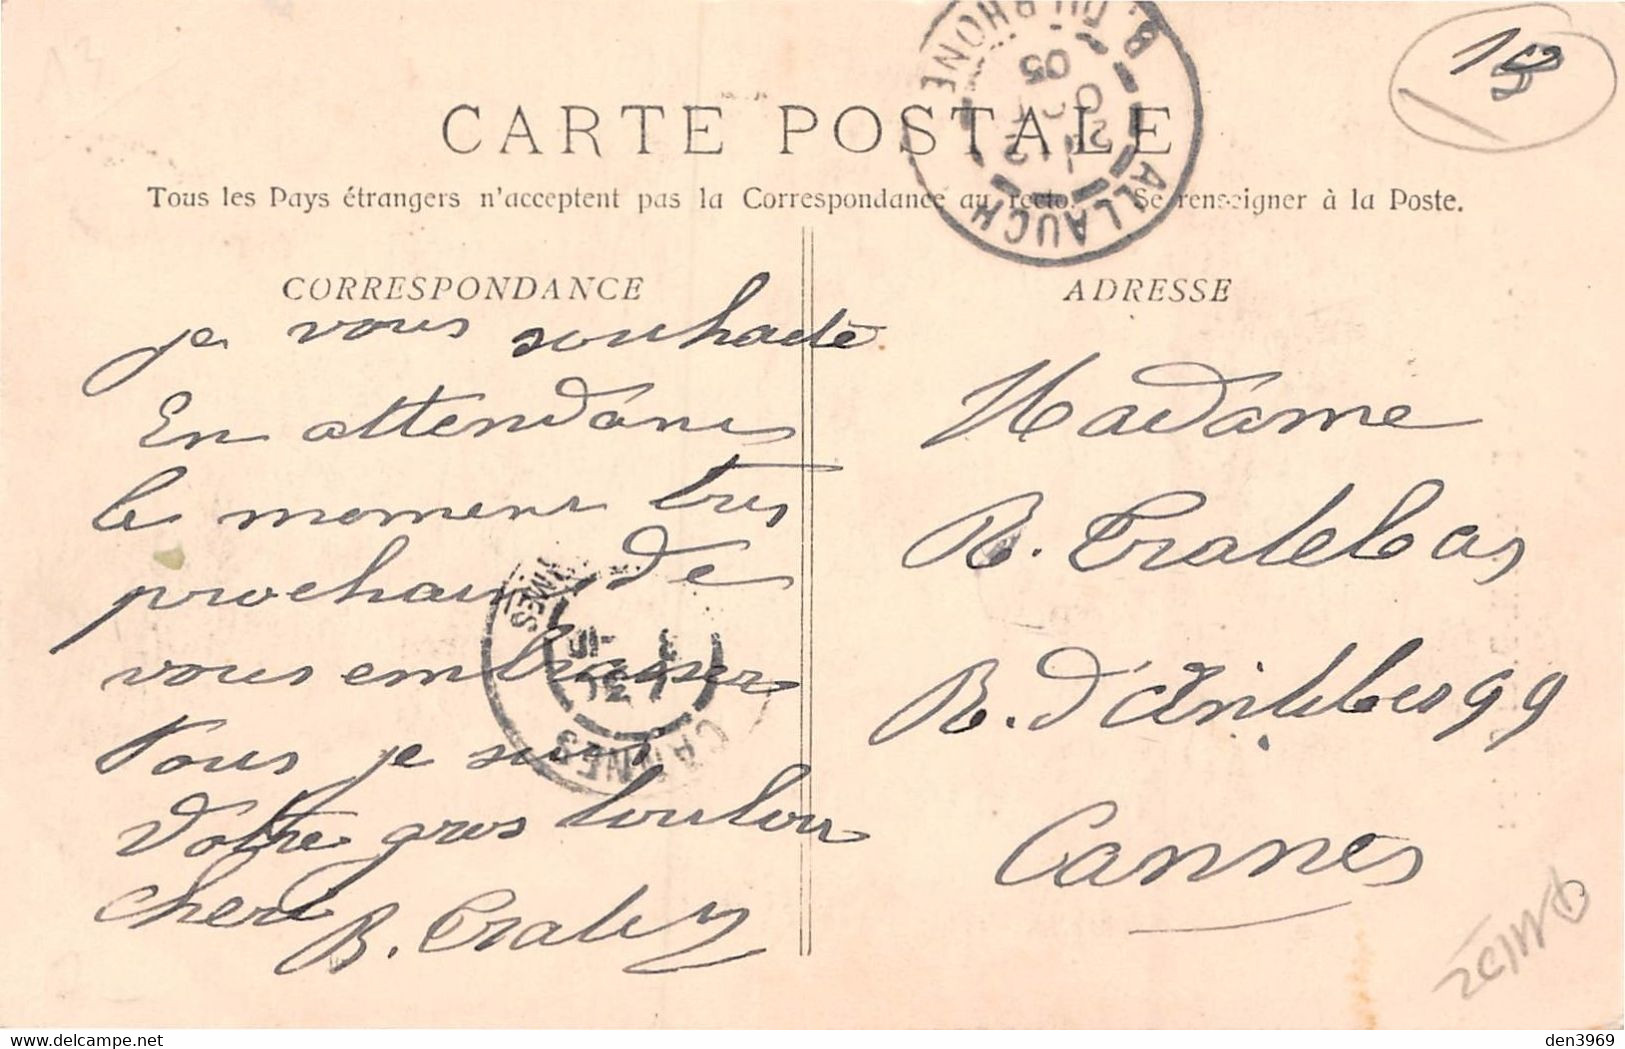 CARTE POSTALE
Tous les Pays étrangers n'acceptent pas la Correspondance au recto. Se renseigner à la Poste.
CORRESPONDANCE
je vous souhaite
En attendans
le moment tres
prochain de
vous embrasser
Vous je suis
Votre gros loulou
cheri
B. Cratey
ADRESSE
Madame
R. d'Antibes 99
Cannes
ALLAUCH
B. DU RHONE
05
CANNES
den3969